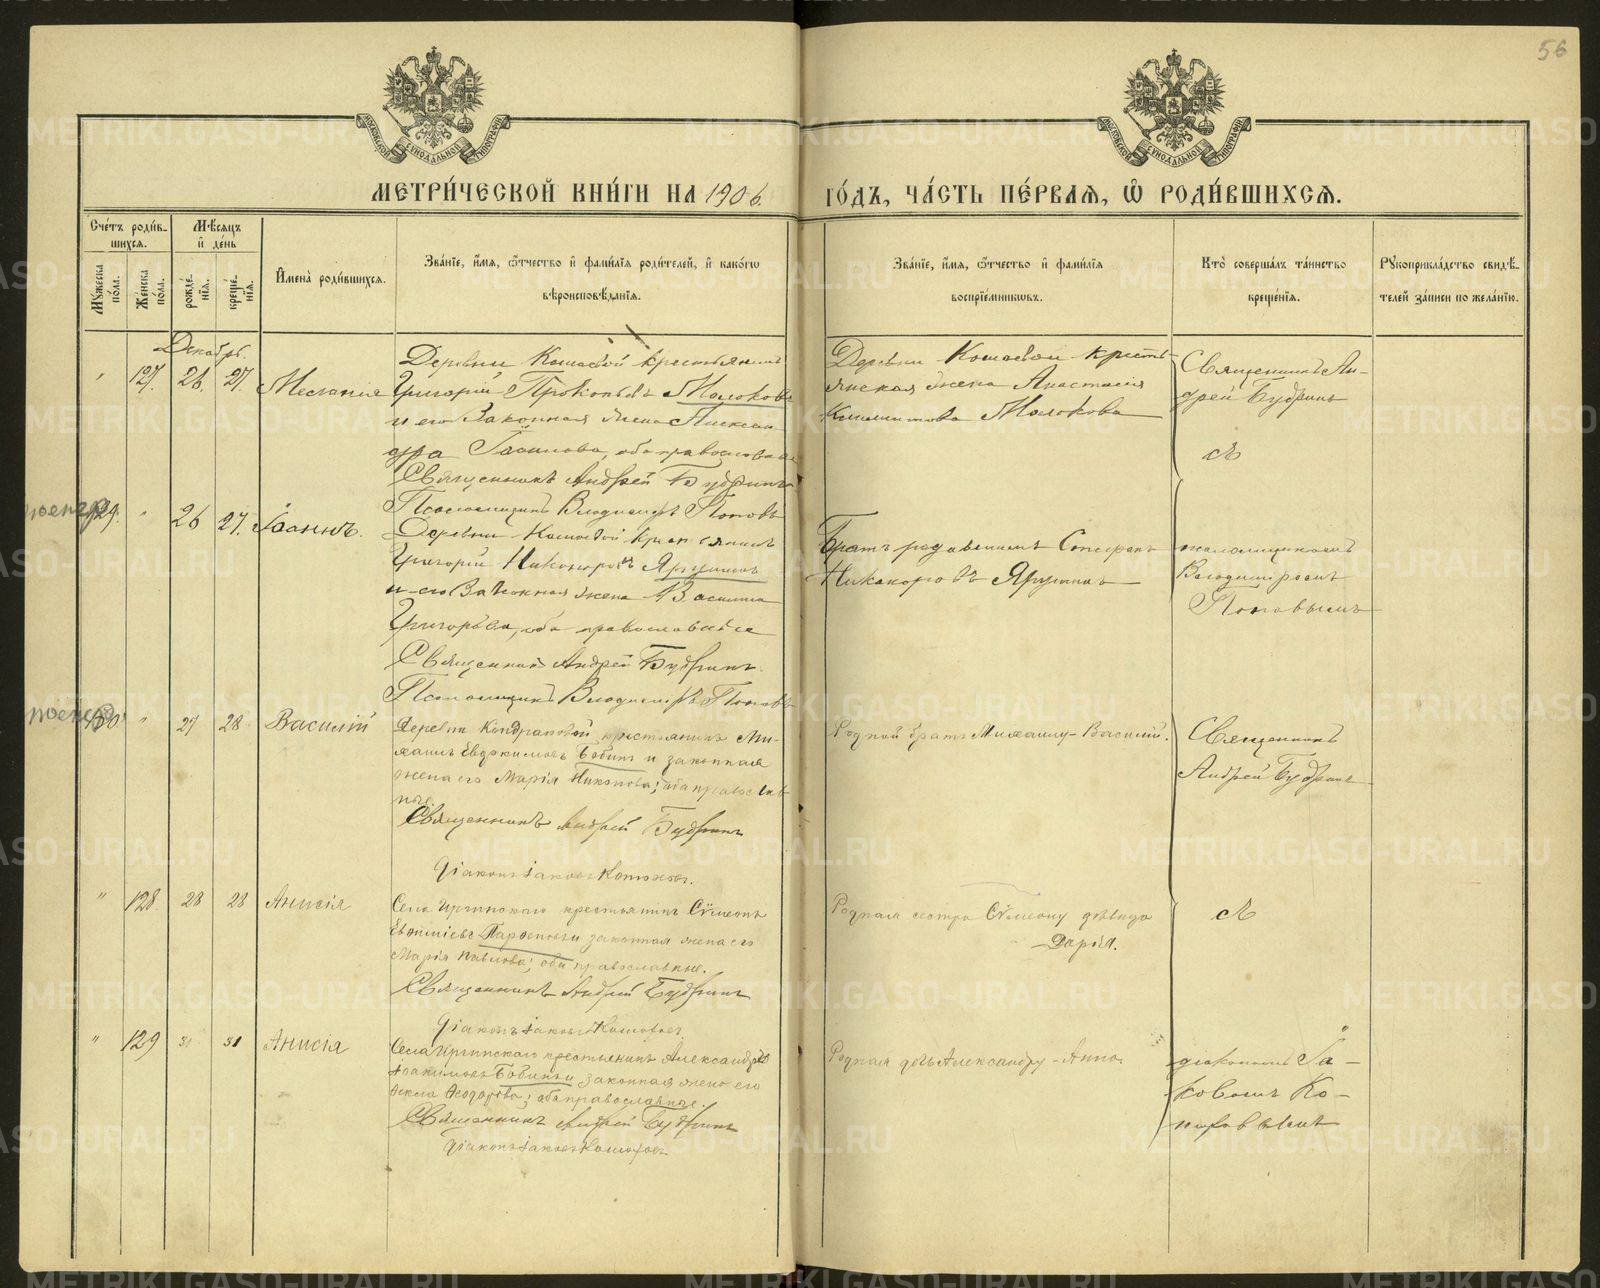 56
МОСКОВСКОЙ СѴНОДАЛЬНОЙ ТИПОГРАФІИ
МОСКОВСКОЙ СѴНОДАЛЬНОЙ ТИПОГРАФІИ
МЕТРИ́ЧЕСКОЙ КНИ́ГИ НА 1906.
ГО́ДЪ, ЧА́СТЬ ПЕ́РВАЯ, Ѽ РОДИ́ВШИХСЯ.
Сче́тъ роди́в-
шихся.
Мѣ́сяцъ
и҆ де́нь
Мꙋ́жеска по́ла.
Же́нска по́ла.
рожде́-
нїя.
креще́-
нїя.
И҆мена̀ роди́вшихся.
Зва́нїе, и҆́мя, ѻ҆́тчество и҆ фами́лїя роди́телей, и҆ како́гѡ
вѣроисповѣ́данїя.
Зва́нїе, и҆́мя, ѻ҆́тчество и҆ фами́лїя
воспрїе́мниковъ.
Кто̀ соверша́лъ та́инство
креще́нїя.
Рꙋкоприкла́дство свидѣ́-
телей за́писи по жела́нїю.
Декабрь.
" 127. 26. 27. Меланія
Деревни Кошаевой крестьянинъ
Григорій Прокопьевъ Молоковъ
и его законная жена Алексан-
дра Іасилова, оба православные
Священникъ Андрей Будринъ
Псаломщикъ Владиміръ Поповъ
Деревни Кошаевой кресть-
янская жена Анастасія
Климентова Молокова
Священникъ Ан-
дрей Будринъ
129. " 26 27. Іоаннъ.
Деревни Кошаевой крестьянинъ
Григорій Никаноровъ Ярушинъ
и его законная жена Василиса
Григорьева, оба православные
Священникъ Андрей Будринъ
Псаломщикъ Владиміръ Поповъ
Братъ родителямъ
Никаноровъ Ярушинъ
псаломщикомъ
Владиміромъ
Поповымъ
130 " 27 28 Василій
Деревни Кондраковой крестьянинъ Ми-
хаилъ Евдокимовъ Бабинъ и законная
жена его Марія Никонова; оба православ-
ные.
Священникъ Андрей Будринъ
Діаконъ Іаковъ Конюховъ.
Родной братъ Михаилу - Василій.
Священникъ
Андрей Будринъ
" 128 28 28 Анисія
Села Иргинскаго крестьянинъ Сѵмеонъ
Евѳиміевъ и законная жена его
Марія Павлова; оба православные.
Священникъ Андрей Будринъ
Діаконъ Іаковъ Конюховъ
Родная сестра Сѵмеону дѣвица
Дарія.
" 129 31 31 Анисія
Села Иргинскаго крестьянинъ Александръ
Іоакимовъ Бабинъ и законная жена его
Ѳекла Ѳеодорова; оба православные.
Священникъ Андрей Будринъ
Діаконъ Іаковъ Конюховъ
Родная дочь Александру - Анна.
діакономъ Іа-
ковомъ Ко-
нюховымъ
METRIKI.GASO-URAL.RU